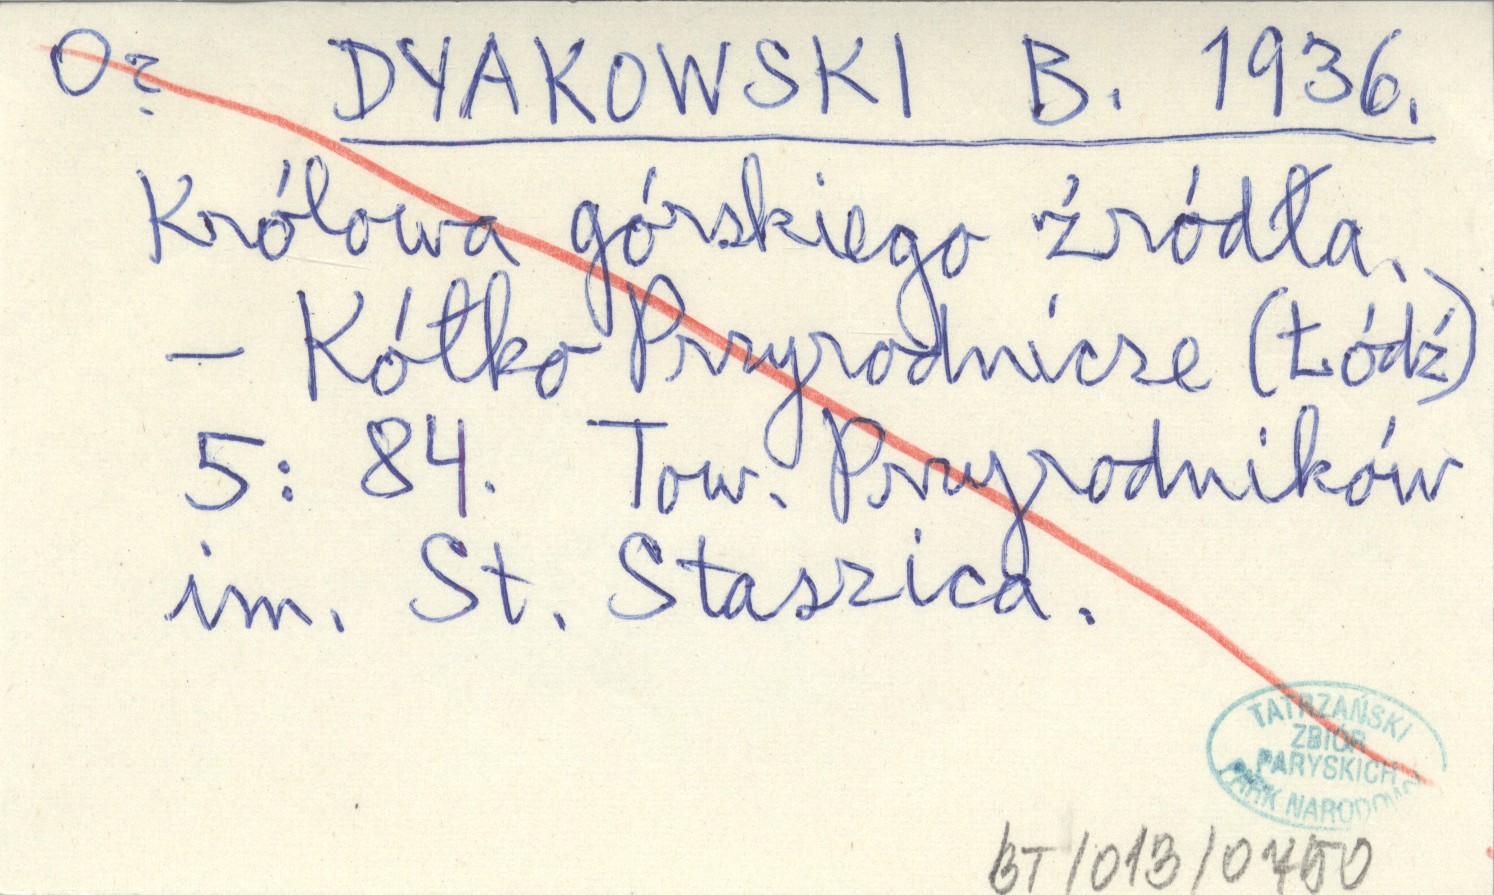 O? DYAKOWSKI B. 1936.
Królowa górskiego źródła.
- Kółko Przyrodnicze (Łódź)
5: 84. Tow. Przyrodników
im. St. Staszica.
TATRZAŃSKI
ZBIÓR
PARYSKICH
PARK NARODOWY
BT/013/0450